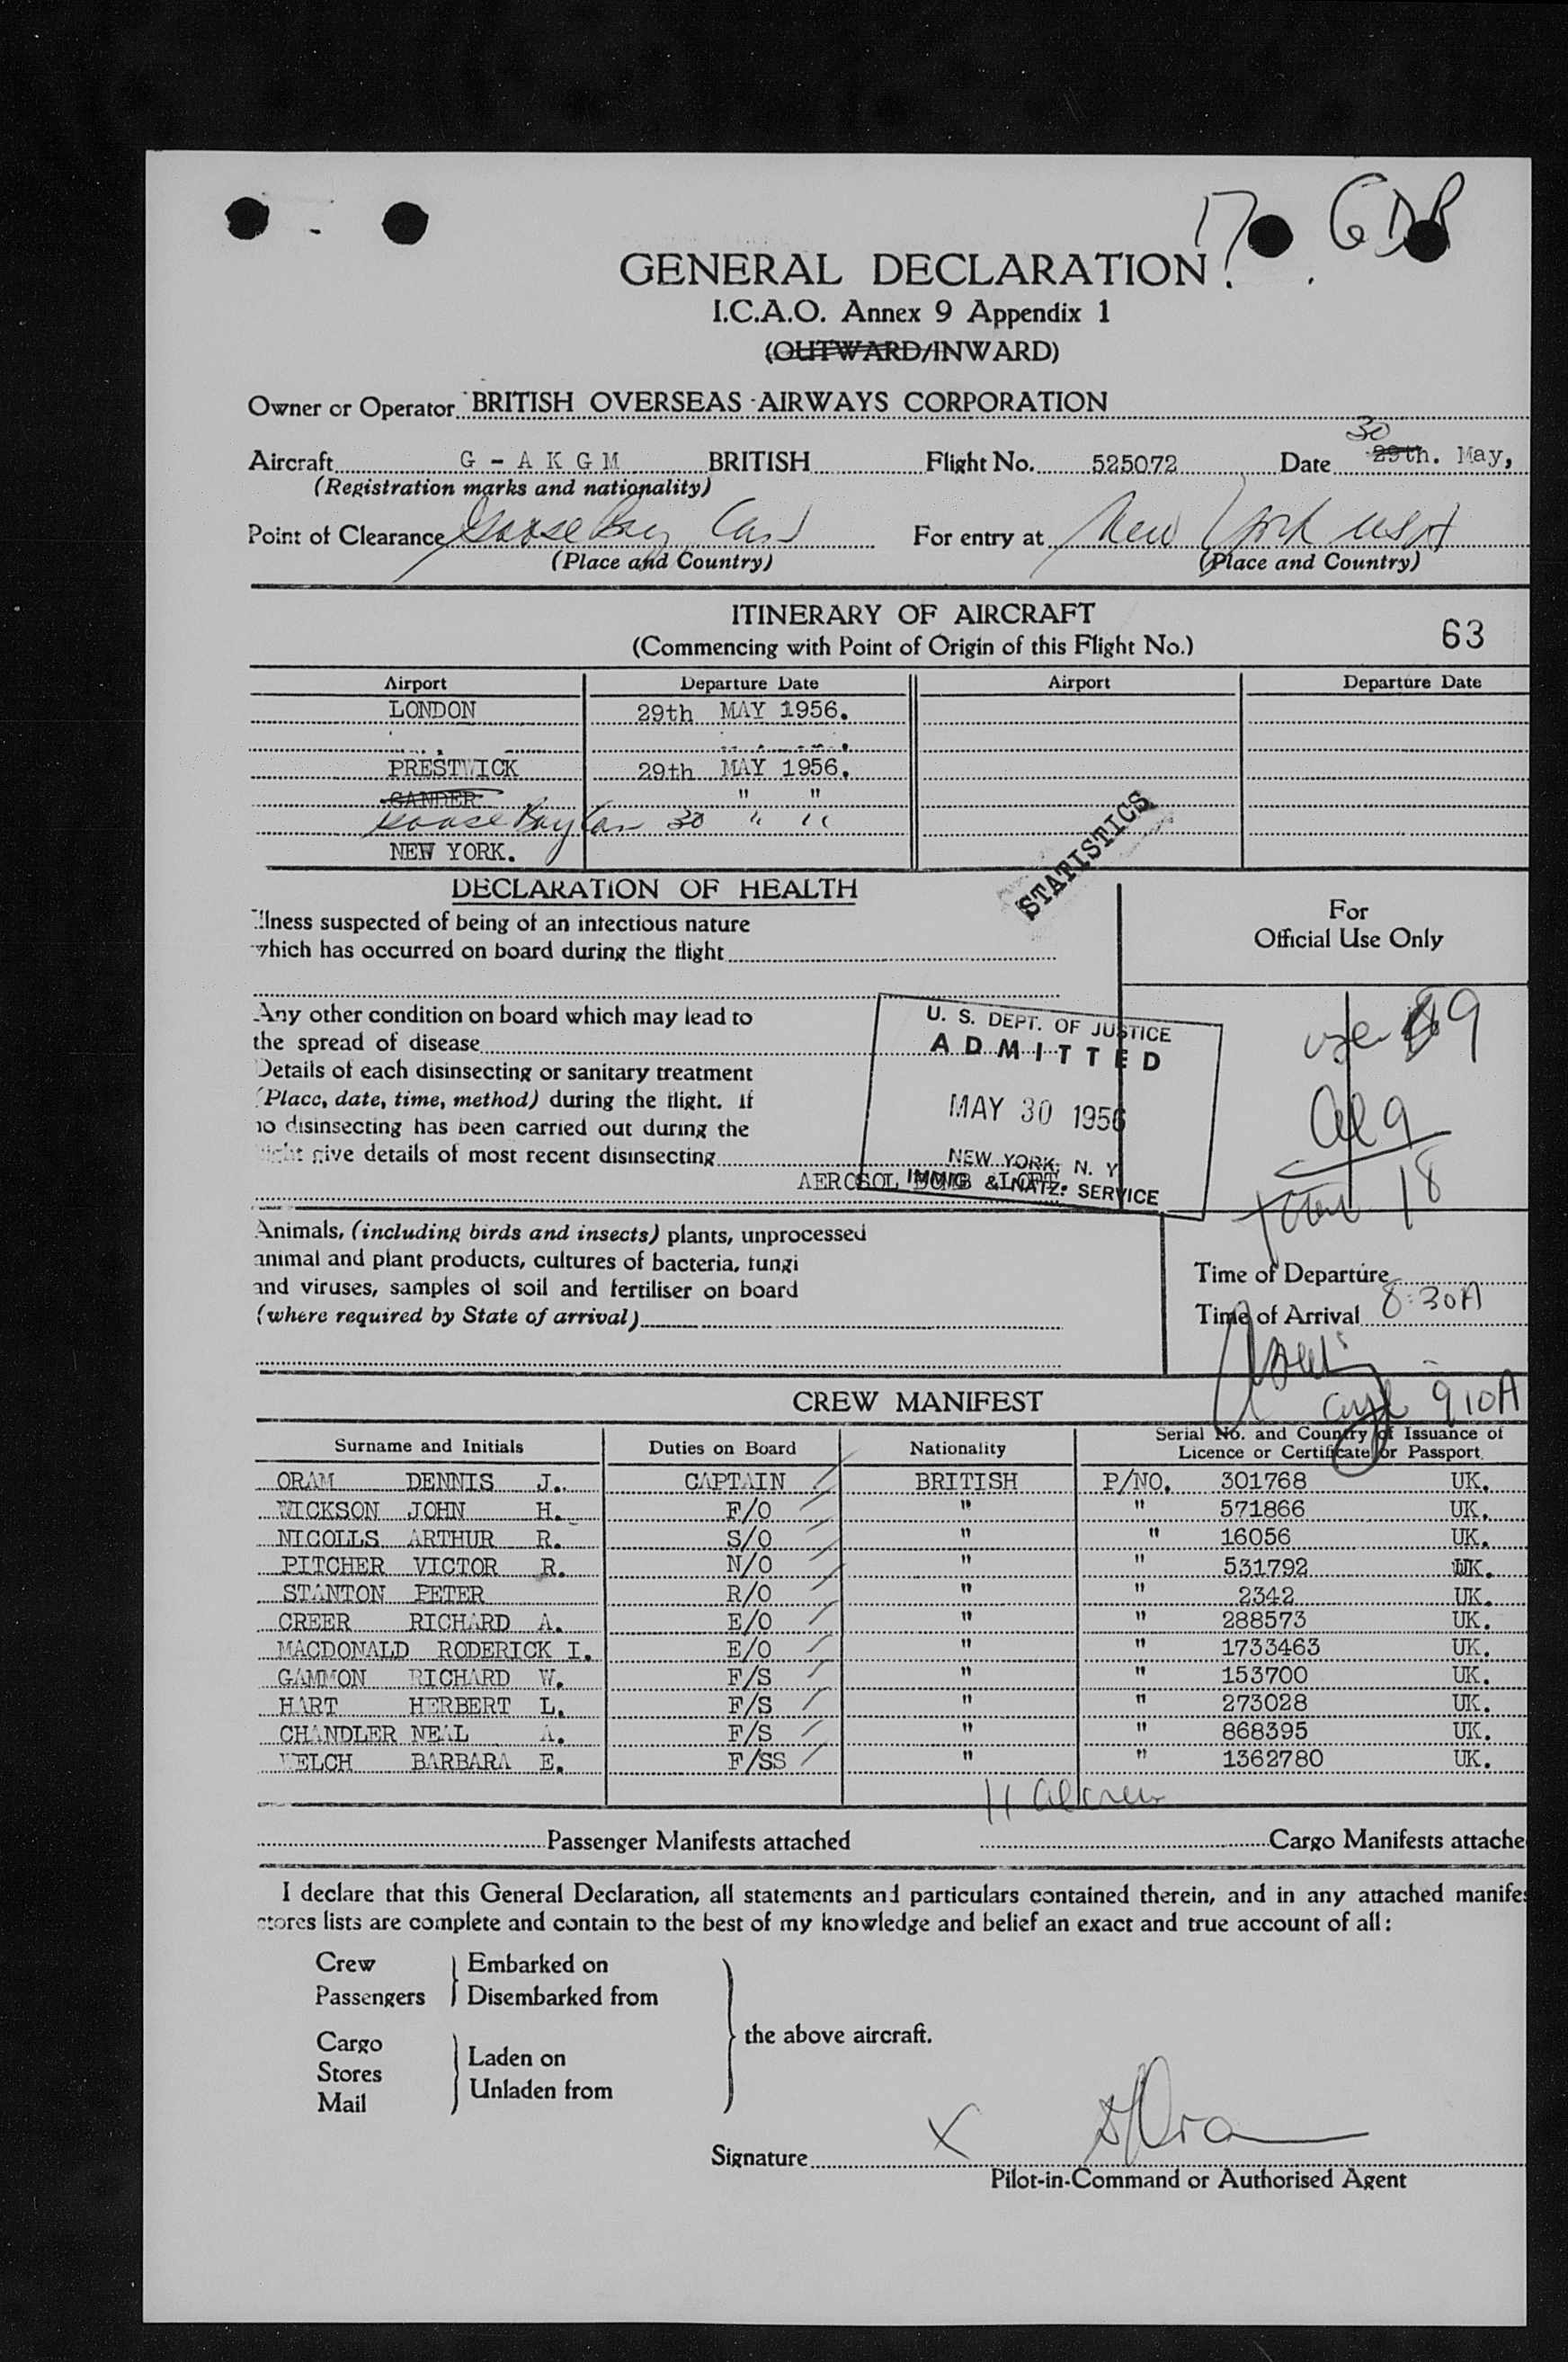 17 GDR
GENERAL DECLARATION
I.C.A.O. Annex 9 Appendix 1
(OUTWARD/INWARD)
Owner or Operator BRITISH OVERSEAS AIRWAYS CORPORATION
30
Aircraft G - A K G M BRITISH Flight No. 525072 Date 29th. May,
(Registration marks and nationality)
Point of Clearance Goose Bay Can For entry at New York USA
(Place and Country) (Place and Country)
ITINERARY OF AIRCRAFT
(Commencing with Point of Origin of this Flight No.) 63
Airport Departure Date Airport Departure Date
LONDON 29th MAY 1956.
PRESTWICK 29th MAY 1956.
GANDER " "
Goose Bay Can 30 " "
NEW YORK.
STATISTICS
DECLARATION OF HEALTH
Illness suspected of being of an infectious nature
which has occurred on board during the flight
For
Official Use Only
Any other condition on board which may lead to
the spread of disease
Details of each disinsecting or sanitary treatment
(Place, date, time, method) during the flight. If
no disinsecting has been carried out during the
flight give details of most recent disinsecting
AEROSOL BOMB
U. S. DEPT. OF JUSTICE
ADMITTED
MAY 30 1956
NEW YORK, N. Y
IMMIG. & NATZ. SERVICE
usc 9
al 9
total 18
Animals, (including birds and insects) plants, unprocessed
animal and plant products, cultures of bacteria, fungi
and viruses, samples of soil and fertiliser on board
(where required by State of arrival)
Time of Departure
Time of Arrival 8:30A
910A
CREW MANIFEST
Surname and Initials Duties on Board Nationality Serial No. and Country of Issuance of
Licence or Certificate or Passport.
ORAM DENNIS J. CAPTAIN BRITISH P/NO. 301768 UK.
WICKSON JOHN H. F/O " " 571866 UK.
NICOLLS ARTHUR R. S/O " " 16056 UK.
PITCHER VICTOR R. N/O " " 531792 UK.
STANTON PETER R/O " " 2342 UK.
CREER RICHARD A. E/O " " 288573 UK.
MACDONALD RODERICK I. E/O " " 1733463 UK.
GAMMON RICHARD W. F/S " " 153700 UK.
HART HERBERT L. F/S " " 273028 UK.
CHANDLER NEAL A. F/S " " 868395 UK.
WELCH BARBARA E. F/SS " " 1362780 UK.
11 al crew
Passenger Manifests attached Cargo Manifests attache
I declare that this General Declaration, all statements and particulars contained therein, and in any attached manifes
stores lists are complete and contain to the best of my knowledge and belief an exact and true account of all:
Crew Embarked on
Passengers Disembarked from
the above aircraft.
Cargo
Stores Laden on
Mail Unladen from
Signature X DJOram
Pilot-in-Command or Authorised Agent